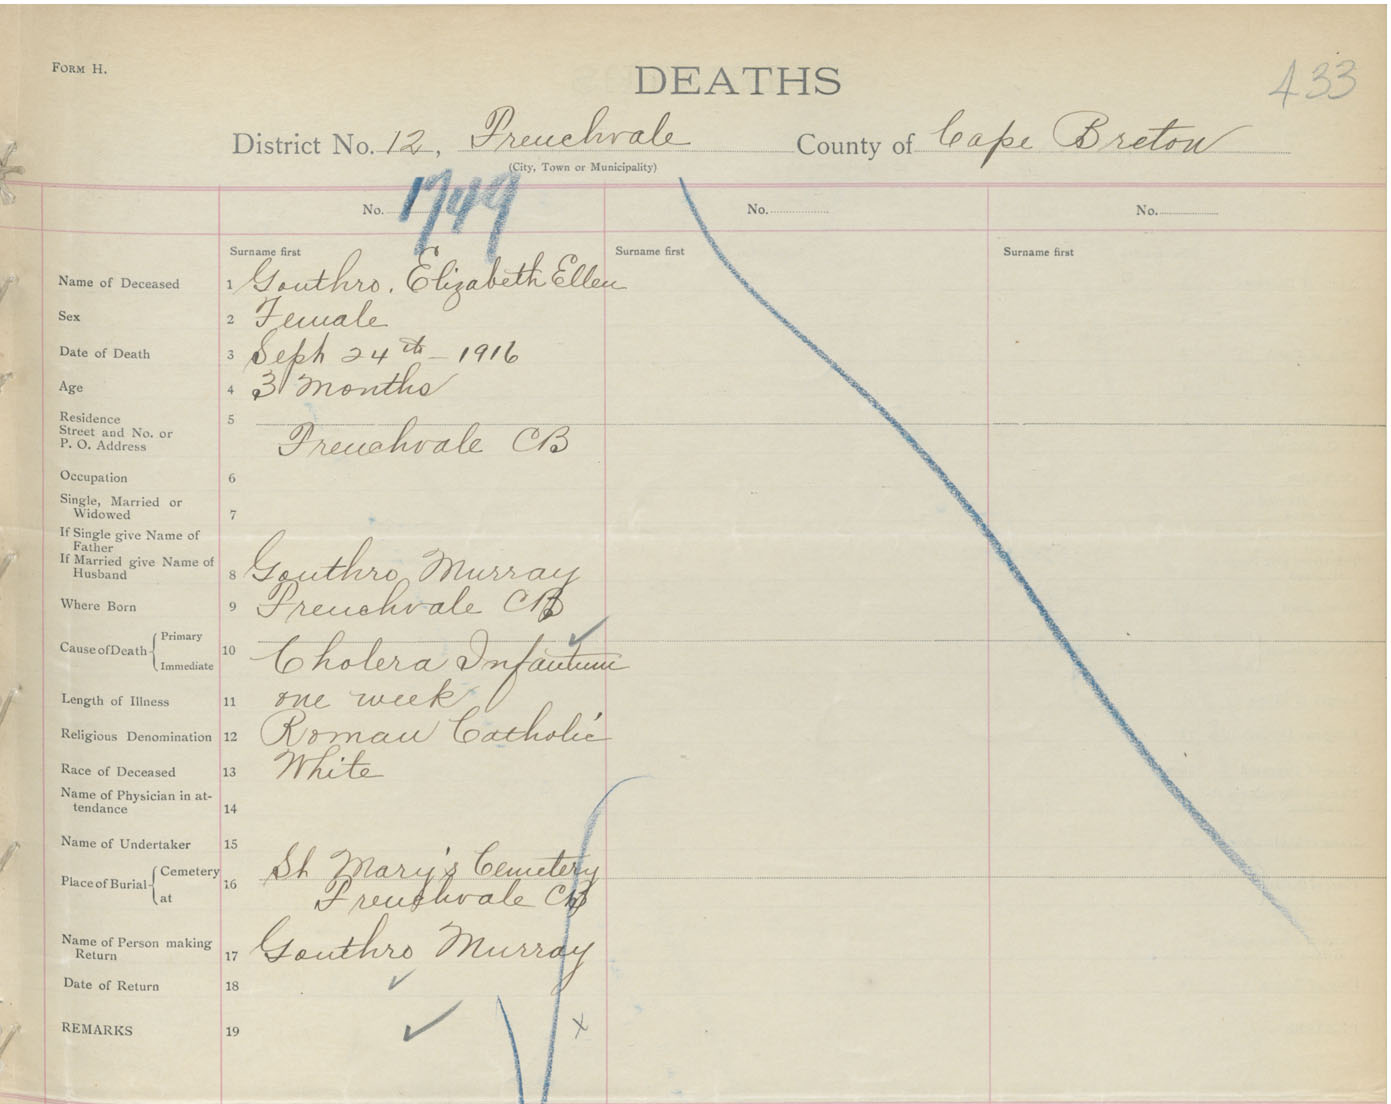 FORM H.
DEATHS
433
District No. 12, Frenchvale County of Cape Breton
(City, Town or Municipality)
No. 1749 No. No.
Surname first Surname first Surname first
Name of Deceased 1 Gouthro, Elizabeth Ellen
Sex 2 Female
Date of Death 3 Sept 24th - 1916
Age 4 3 Months
Residence 5
Street and No. or
P. O. Address Frenchvale CB
Occupation 6
Single, Married or
Widowed 7
If Single give Name of
Father
If Married give Name of
Husband 8 Gouthro Murray
Where Born 9 Frenchvale CB
Cause of Death { Primary
Immediate 10 Cholera Infantum
Length of Illness 11 one week
Religious Denomination 12 Roman Catholic
Race of Deceased 13 White
Name of Physician in at-
tendance 14
Name of Undertaker 15
Place of Burial { Cemetery 16 St Mary's Cemetery
at Frenchvale CB
Name of Person making
Return 17 Gouthro Murray
Date of Return 18
REMARKS 19